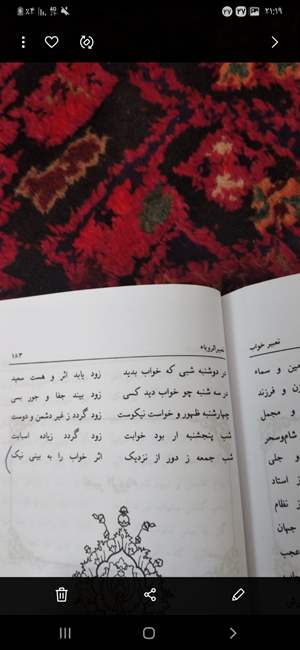 ۲۱:۱۹
تعبیرالرویاء
۱۸۳
در دوشنبه شبی که خواب بدید زود یابد اثر و هست سعید
در سه شنبه چو خواب دید کسی زود بیند جفا و جور بسی
چهارشنبه ظهور و خواست نیکوست زود گردد ز غیر دشمن و دوست
شب پنجشنبه ار بود خوابت زود گردد زیاده اسبابت
شب جمعه ز دور از نزدیک اثر خواب را به بینی نیک
تعبیر خواب
مین و سماء
زن و فرزند
و مجمل
شام‌وسحر
و جلی
ز استاد
ز نظام
جهان